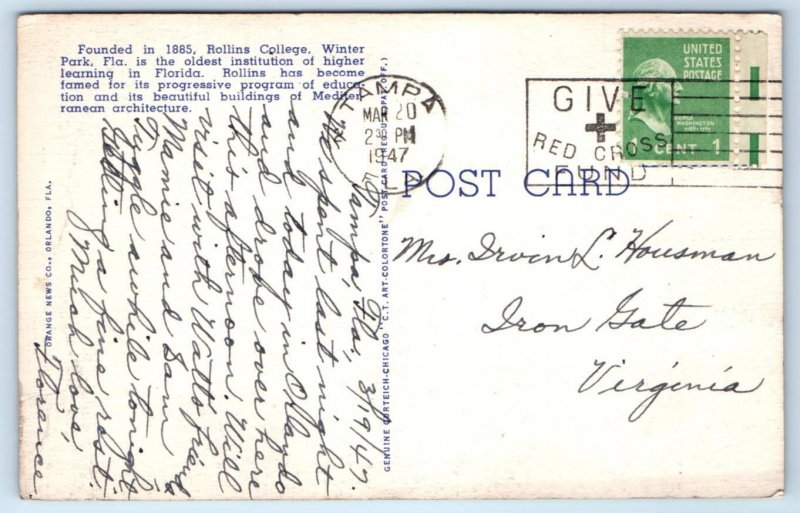 Founded in 1885, Rollins College, Winter
Park, Fla. is the oldest institution of higher
learning in Florida. Rollins has become
famed for its progressive program of educa-
tion and its beautiful buildings of Mediter-
ranean architecture.
TAMPA
MAR 20
2 30 PM
1947
FLA
GIVE
RED CROSS
FUND
UNITED
STATES
POSTAGE
GEORGE
WASHINGTON
CENT 1
POST CARD
Mrs. Irvin L. Housman
Iron Gate
Virginia
Tampa, Fla., 3/19/47.
We spent last night
and today in Orlando
and drove over here
this afternoon. Will
visit with Watts' friend
Mamie and Sam
Tyggle awhile tonight.
Getting a fine rest.
Much love,
Florence
ORANGE NEWS CO., ORLANDO, FLA.
GENUINE CURTEICH-CHICAGO "C.T. ART-COLORTONE" POST CARD (REG. U.S. PAT. OFF.)